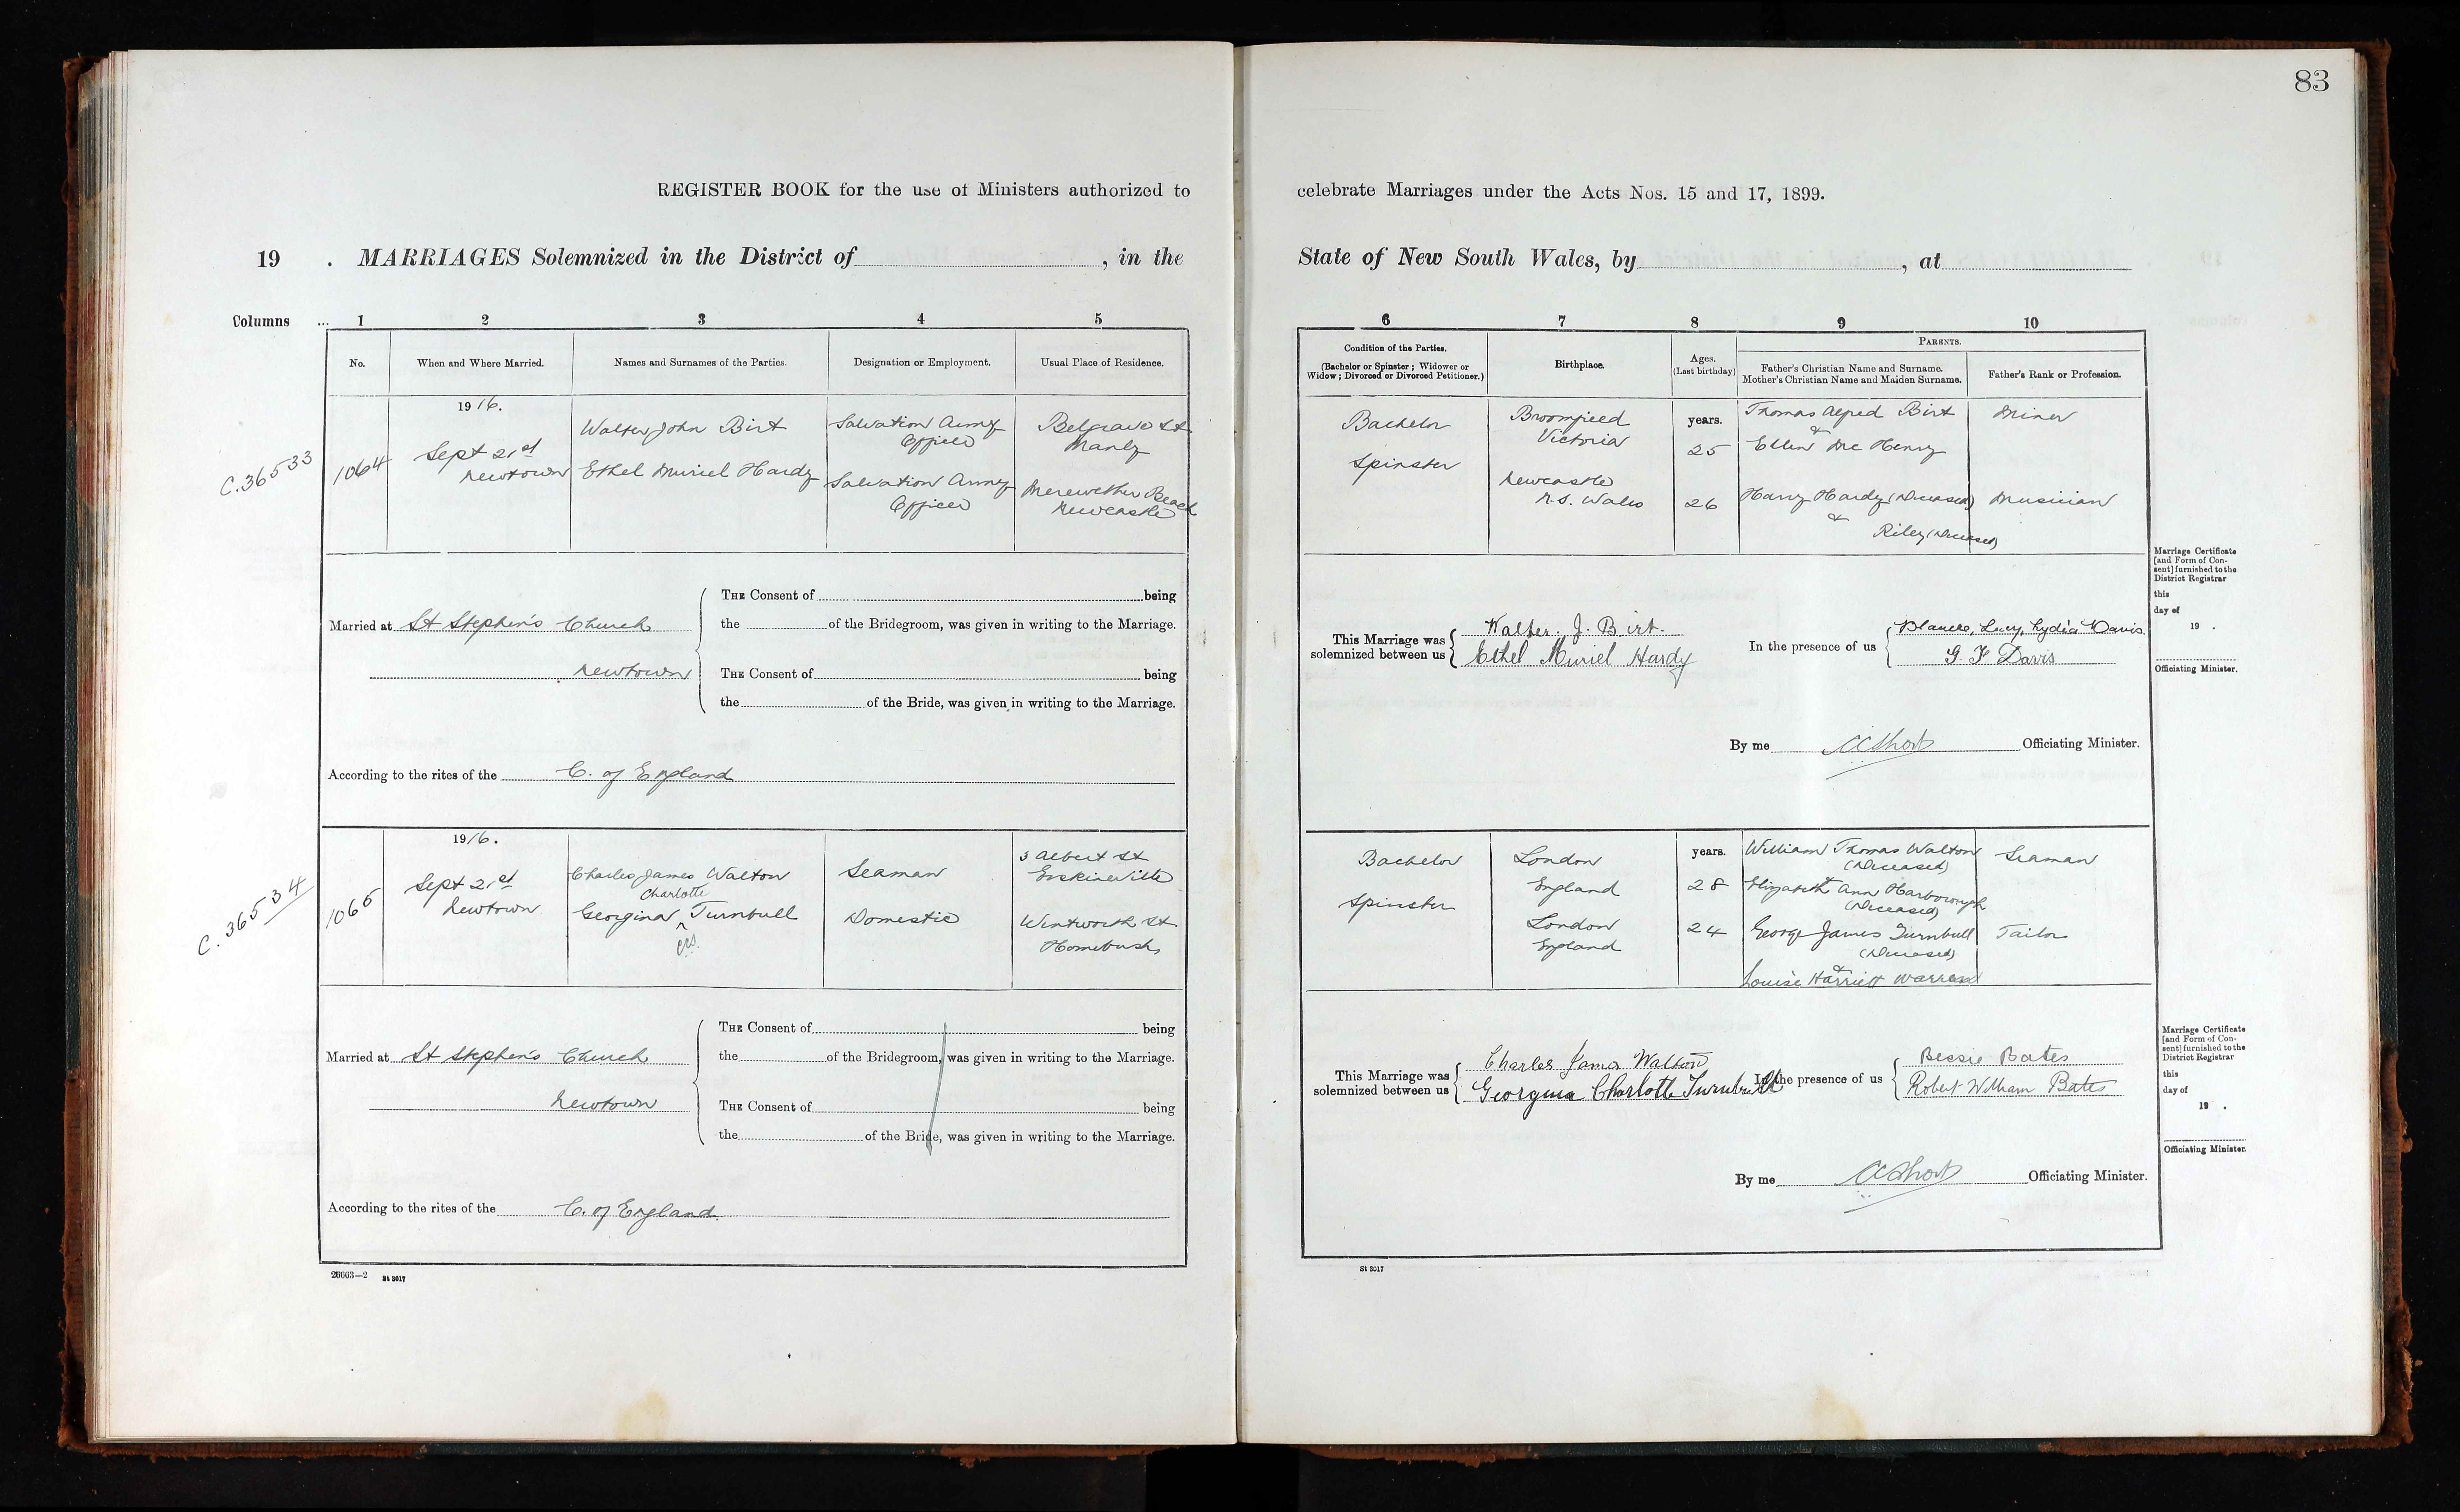 83
REGISTER BOOK for the use of Ministers authorized to celebrate Marriages under the Acts Nos. 15 and 17, 1899.
19 . MARRIAGES Solemnized in the District of , in the State of New South Wales, by , at
Columns ... 1 2 3 4 5 6 7 8 9 10
No.
When and Where Married.
Names and Surnames of the Parties.
Designation or Employment.
Usual Place of Residence.
Condition of the Parties.
(Bachelor or Spinster ; Widower or
Widow ; Divorced or Divorced Petitioner.)
Birthplace.
Ages.
(Last birthday)
PARENTS.
Father's Christian Name and Surname.
Mother's Christian Name and Maiden Surname.
Father's Rank or Profession.
C.36533
1064
1916.
Sept 21st
Newtown
Walter John Birt
Ethel Muriel Hardy
Salvation Army
Officer
Salvation Army
Officer
Belgrave St
Manly
Merewether Beach
Newcastle
Bachelor
Spinster
Broomfield
Victoria
Newcastle
N.S. Wales
years.
25
26
Thomas Alfred Birt
&
Ellen Mc Henry
Harry Hardy (Deceased)
&
Riley (Deceased)
Miner
Musician
Married at St Stephen's Church
Newtown
THE Consent of being
the of the Bridegroom, was given in writing to the Marriage.
THE Consent of being
the of the Bride, was given in writing to the Marriage.
According to the rites of the C. of England
This Marriage was
solemnized between us
Walter. J. Birt.
Ethel Muriel Hardy
In the presence of us
Blanche, Lucy, Lydia Davis.
G. F Davis
By me Officiating Minister.
Marriage Certificate
[and Form of Con-
sent] furnished to the
District Registrar
this
day of
19 .
Officiating Minister.
C. 36534
1065
1916.
Sept 21st
Newtown
Charles James Walton
Charlotte
Georgina ^ Turnbull
Seaman
Domestic
3 Albert St
Erskineville
Wentworth St
Homebush
Bachelor
Spinster
London
England
London
England
years.
28
24
William Thomas Walton
(Deceased)
Elizabeth Ann Harborough
(Deceased)
George James Turnbull
(Deceased)
&
Louise Harriett Warren
Seaman
Tailor
Married at St Stephen's Church
Newtown
THE Consent of being
the of the Bridegroom, was given in writing to the Marriage.
THE Consent of being
the of the Bride, was given in writing to the Marriage.
According to the rites of the C. of England.
This Marriage was
solemnized between us
Charles James Walton
Georgina Charlotte Turnbull
In the presence of us
Bessie Bates
Robert William Bates
By me Officiating Minister.
Marriage Certificate
[and Form of Con-
sent] furnished to the
District Registrar
this
day of
19 .
Officiating Minister.
26063—2 St 3017
St 3017